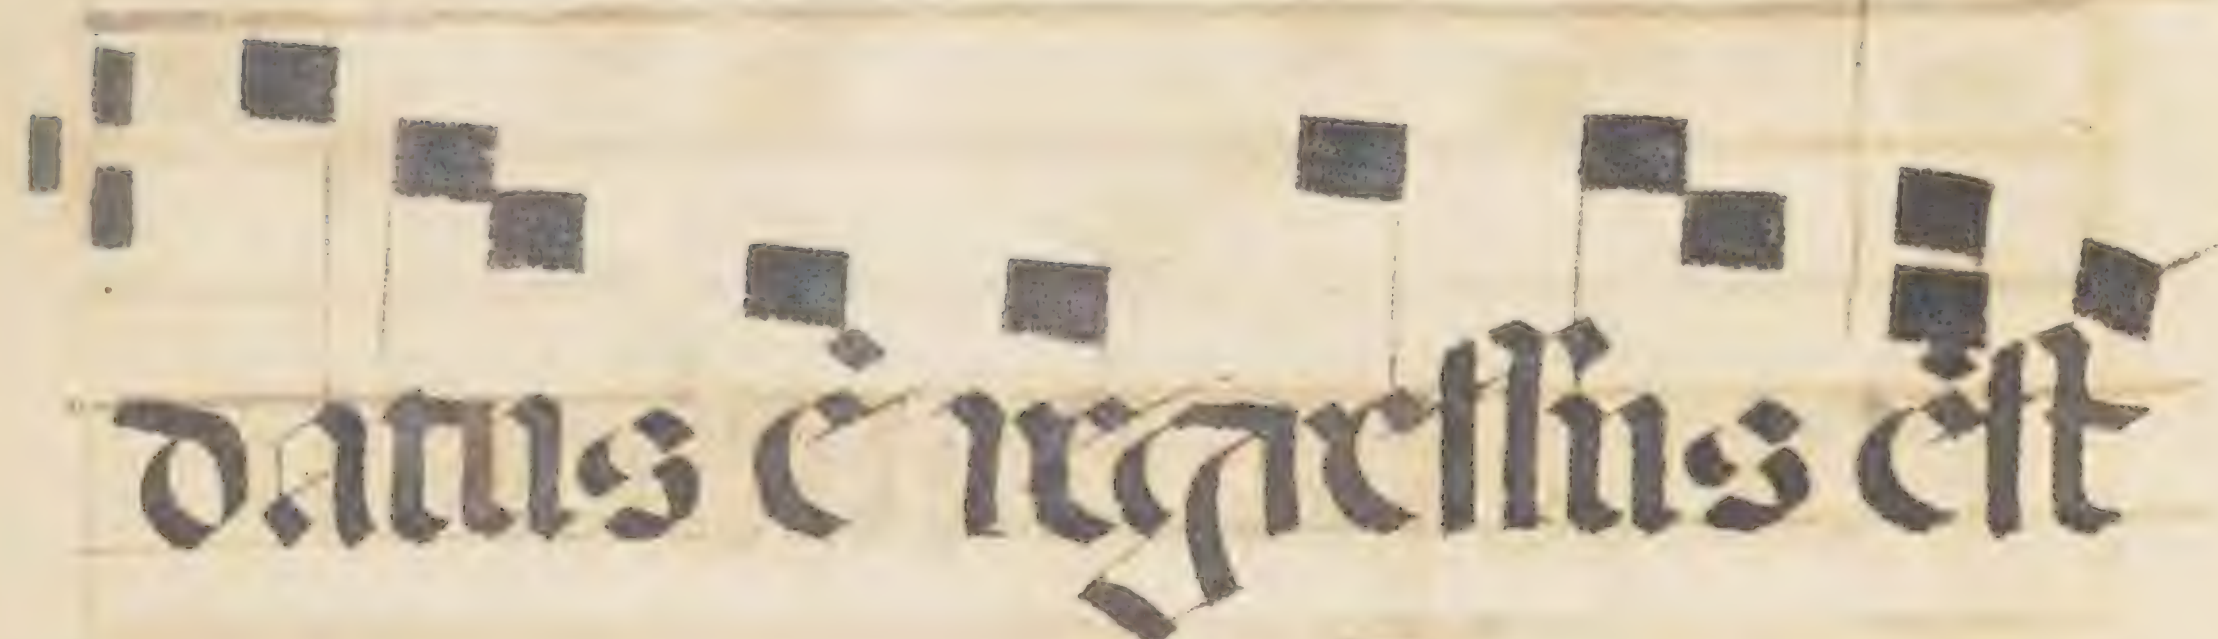 datus ē regressus est